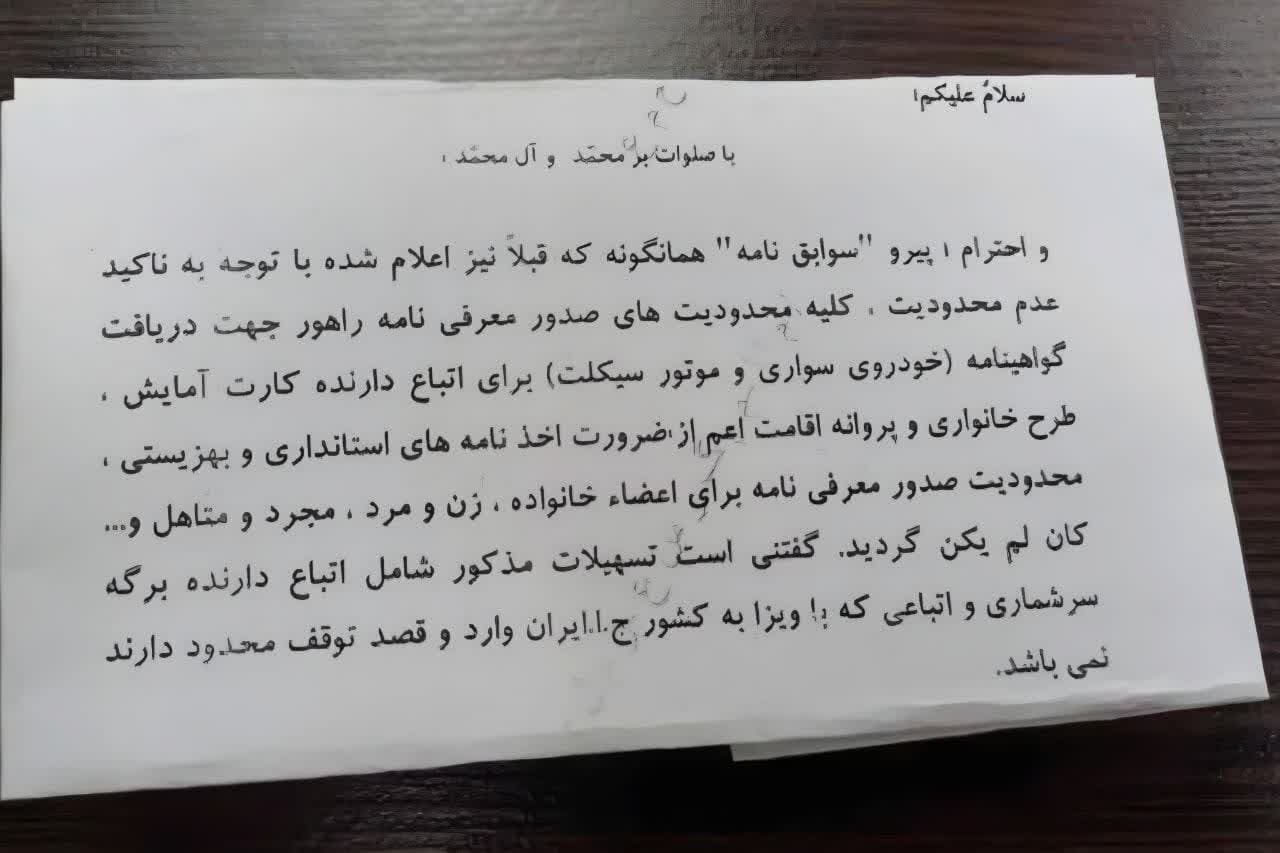 سلامٌ علیکم؛
با صلوات بر محمّد و آل محمّد ؛
و احترام ؛ پیرو "سوابق نامه" همانگونه که قبلاً نیز اعلام شده با توجه به تاکید
عدم محدودیت ، کلیه محدودیت های صدور معرفی نامه راهور جهت دریافت
گواهینامه (خودروی سواری و موتور سیکلت) برای اتباع دارنده کارت آمایش ،
طرح خانواری و پروانه اقامت اعم از ضرورت اخذ نامه های استانداری و بهزیستی ،
محدودیت صدور معرفی نامه برای اعضاء خانواده ، زن و مرد ، مجرد و متاهل و...
کان لم یکن گردید. گفتنی است تسهیلات مذکور شامل اتباع دارنده برگه
سرشماری و اتباعی که با ویزا به کشور ج.ا.ایران وارد و قصد توقف محدود دارند
نمی باشد.